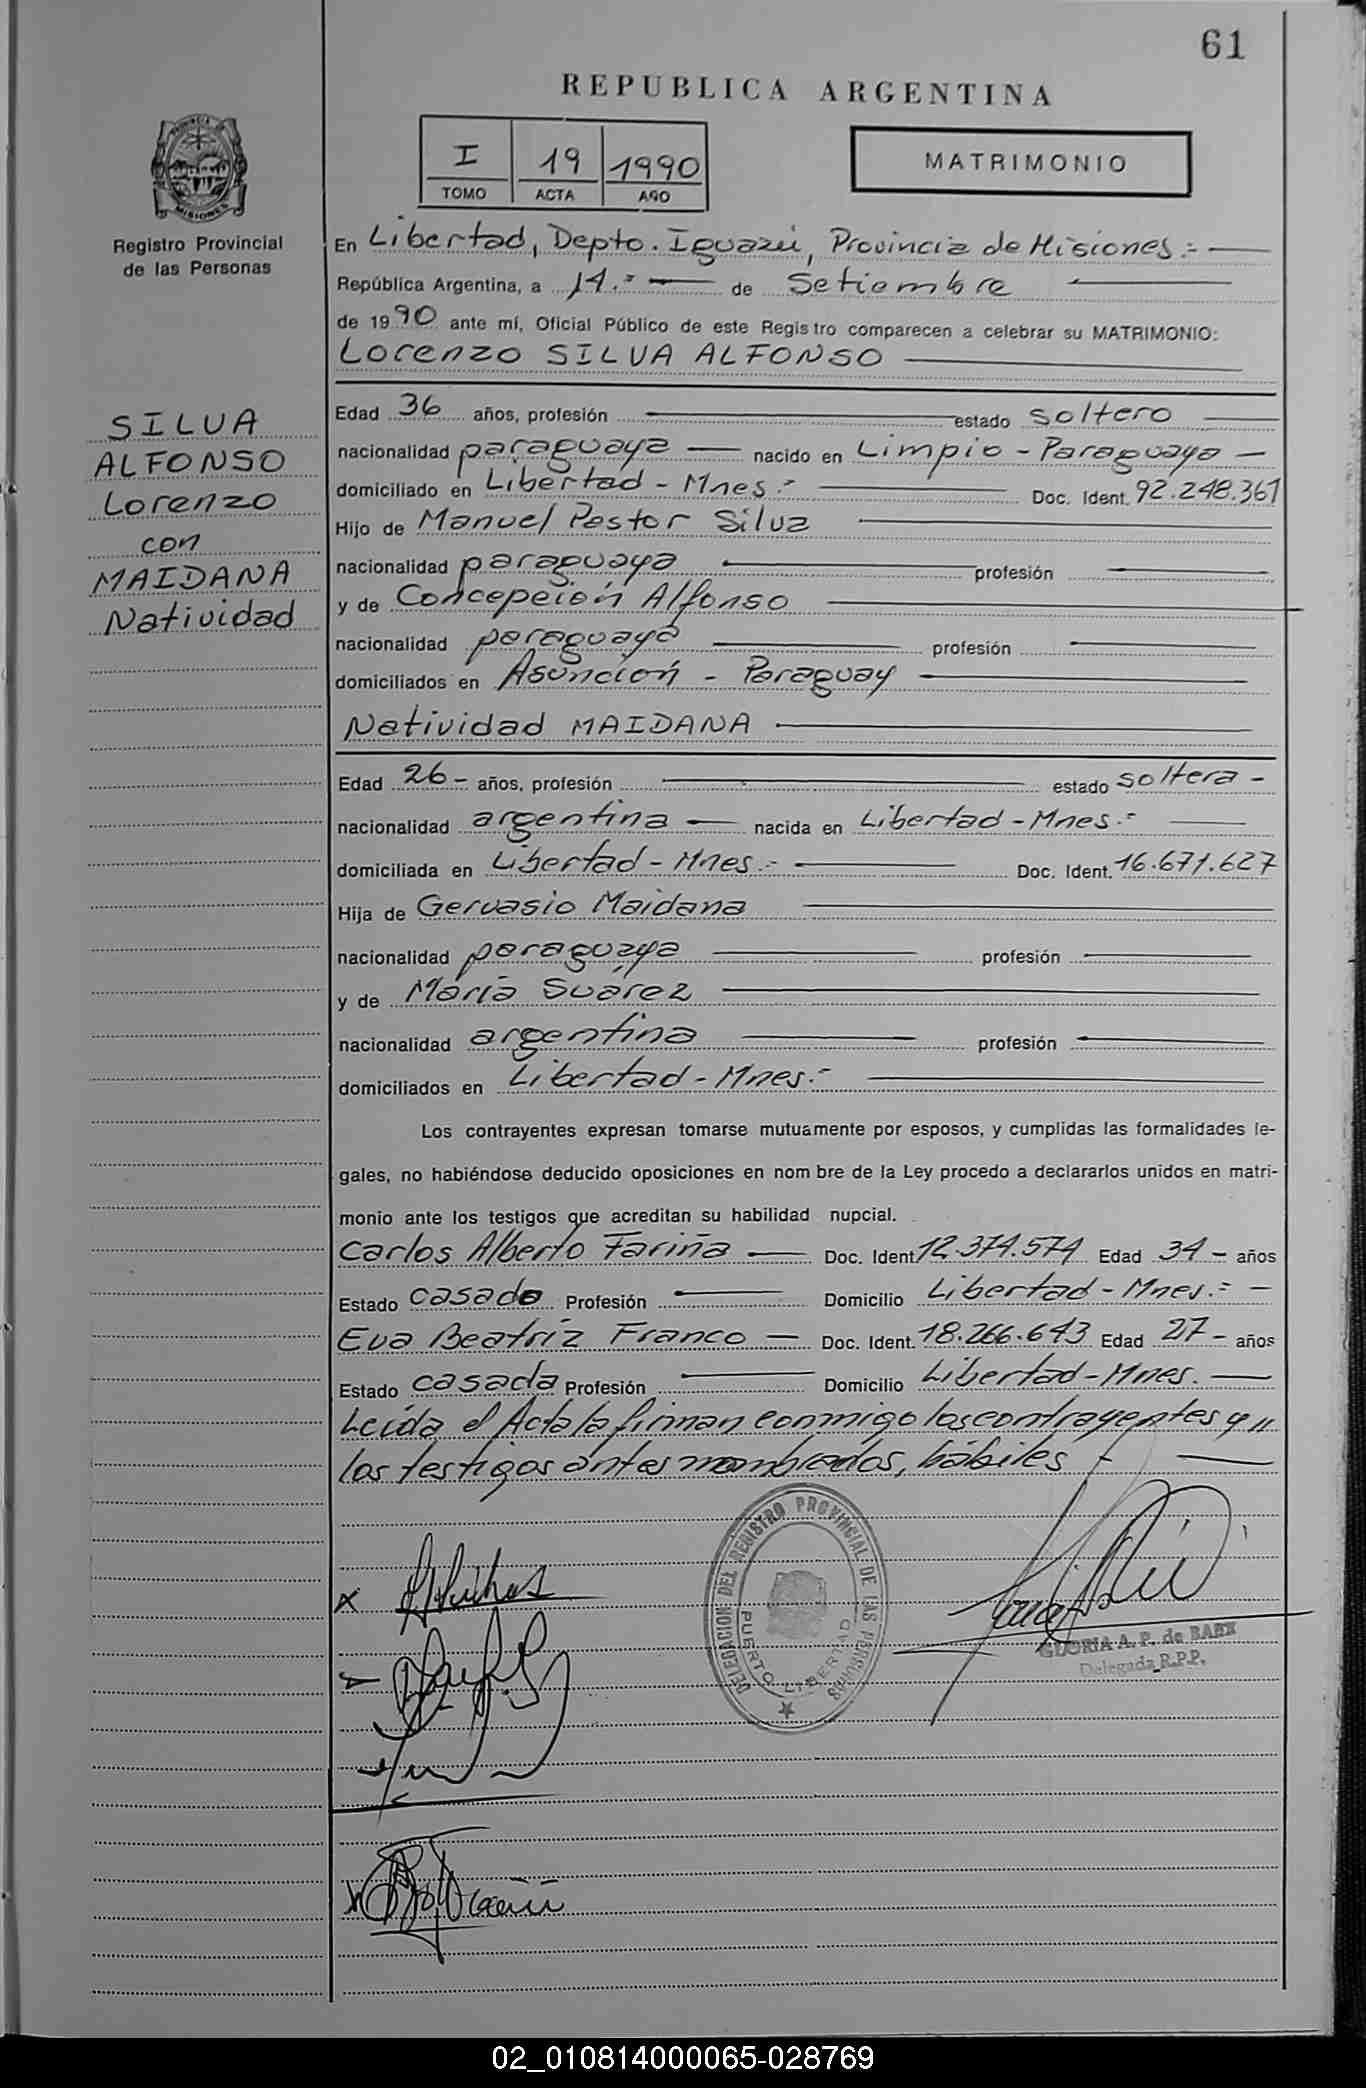 61
REPUBLICA ARGENTINA
I 19 1990
TOMO ACTA AÑO
MATRIMONIO
PROVINCIA DE MISIONES
Registro Provincial
de las Personas
En Libertad, Depto. Iguazú, Provincia de Misiones:-
República Argentina, a 14.- de Setiembre
de 1990 ante mí, Oficial Público de este Registro comparecen a celebrar su MATRIMONIO:
Lorenzo SILVA ALFONSO
SILVA
ALFONSO
Lorenzo
con
MAIDANA
Natividad
Edad 36 años, profesión estado soltero
nacionalidad paraguaya nacido en Limpio - Paraguaya -
domiciliado en Libertad - Mnes:- Doc. Ident. 92.248.361
Hijo de Manuel Pastor Silva
nacionalidad paraguaya profesión
y de Concepción Alfonso
nacionalidad paraguaya profesión
domiciliados en Asunción - Paraguay
Natividad MAIDANA
Edad 26 - años, profesión estado soltera -
nacionalidad argentina nacida en Libertad - Mnes.-
domiciliada en Libertad - Mnes:- Doc. Ident. 16.671.627
Hija de Gervasio Maidana
nacionalidad paraguaya profesión
y de María Suárez
nacionalidad argentina profesión
domiciliados en Libertad - Mnes:-
Los contrayentes expresan tomarse mutuamente por esposos, y cumplidas las formalidades le-
gales, no habiéndose deducido oposiciones en nombre de la Ley procedo a declararlos unidos en matri-
monio ante los testigos que acreditan su habilidad nupcial.
Carlos Alberto Fariña Doc. Ident 12.374.574 Edad 34 - años
Estado casado Profesión Domicilio Libertad - Mnes.:- -
Eva Beatríz Franco Doc. Ident. 18.266.643 Edad 27 - años
Estado casada Profesión Domicilio Libertad - Mnes.
Leída el Acta la firman conmigo los contrayentes y "
los testigos antes nombrados, hábiles -
DELEGACION DEL REGISTRO PROVINCIAL DE LAS PERSONAS
PUERTO LIBERTAD
GLORIA A. P. de BAEZ
Delegada R.P.P.
02_010814000065-028769